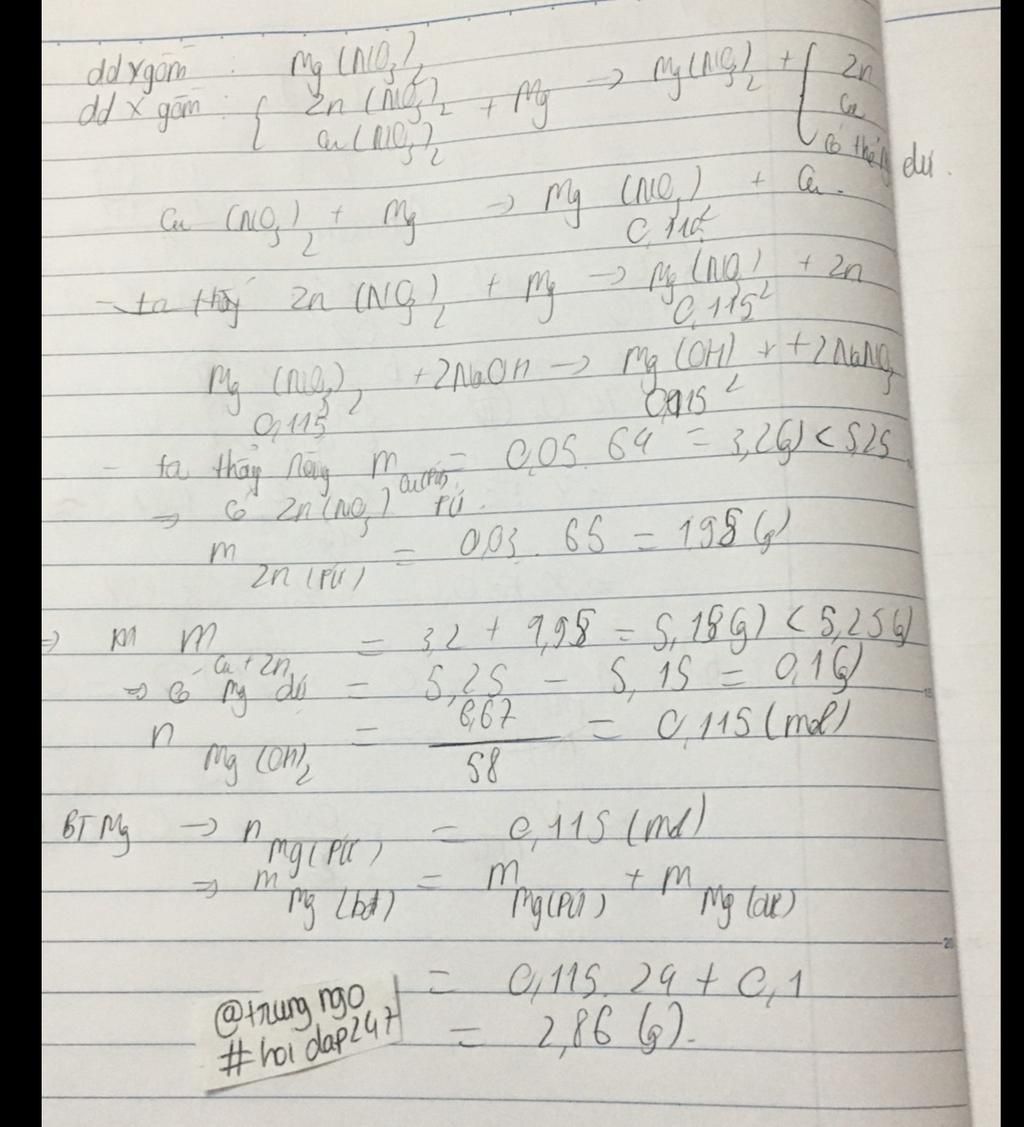 dd Y gồm : Mg(NO3)2
dd X gồm : { Zn(NO3)2 + Mg → Mg(NO3)2 + { Zn
Cu(NO3)2 Cu
có thể dư.
Cu(NO3)2 + Mg → Mg(NO3)2 + Cu.
- ta thấy Zn(NO3)2 + Mg → Mg(NO3)2 + Zn
0,115
Mg(NO3)2 + 2NaOH → Mg(OH)2 + 2NaNO3
0,115 0,115
- ta thấy rằng m Cu(PƯ) = 0,05.64 = 3,2(g) < 5,25
⇒ có Zn(NO3)2 PƯ.
m Zn(PƯ) = 0,03.65 = 1,95(g)
⇒ m Cu+Zn = 3,2 + 1,95 = 5,15(g) < 5,25(g)
⇒ có Mg dư = 5,25 - 5,15 = 0,1(g)
n Mg(OH)2 = 6,67/58 = 0,115(mol)
BT Mg → n Mg(PƯ) = 0,115(mol)
⇒ m Mg(bđ) = m Mg(PƯ) + m Mg(dư)
= 0,115.24 + 0,1
= 2,86(g).
@trung ngo
#hoi dap247
20